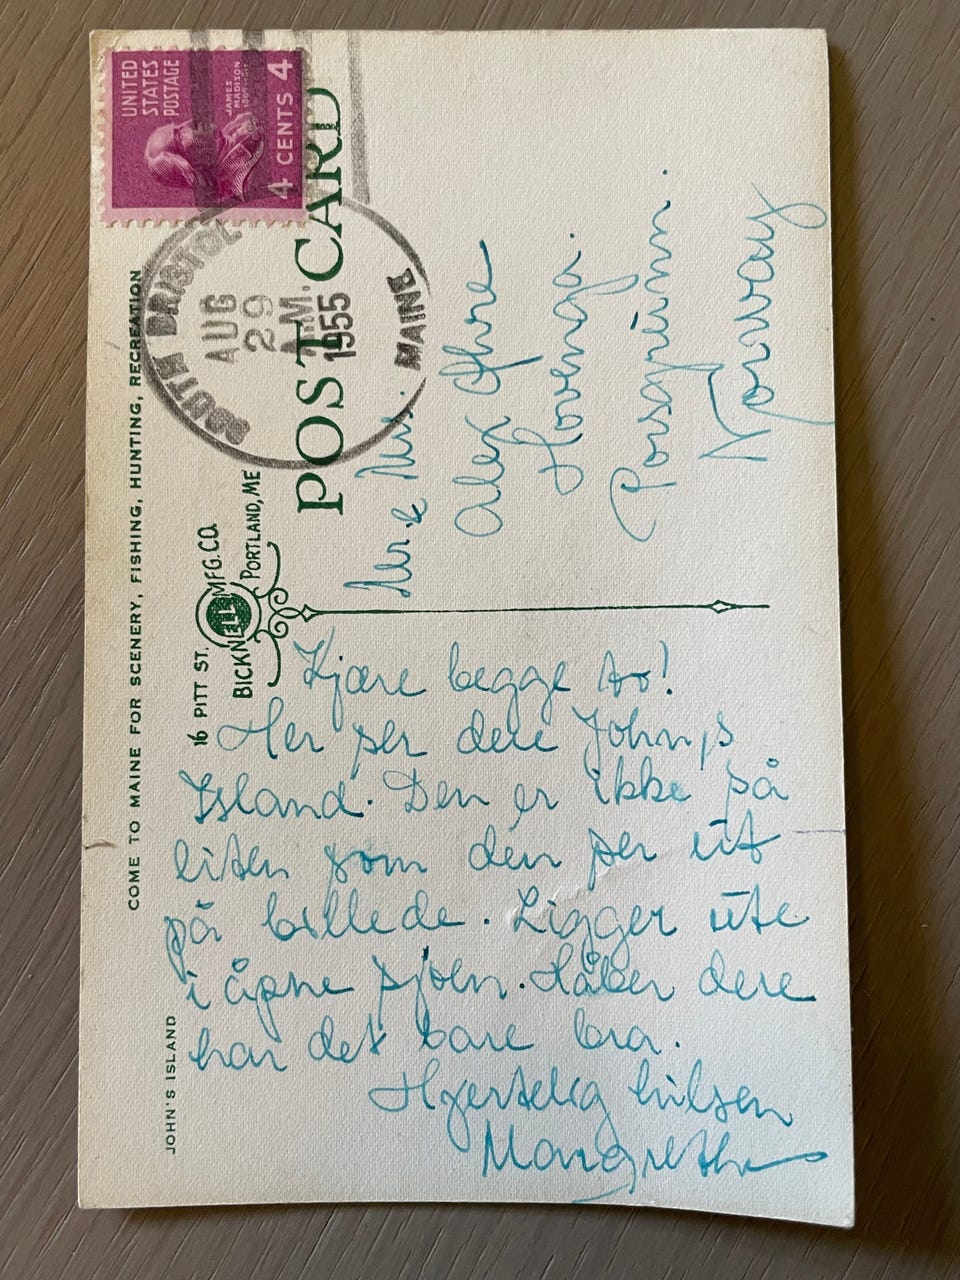 UNITED
STATES
POSTAGE
JAMES
MADISON
1809-1817
4 CENTS 4
SOUTH BRISTOL
AUG
29
A.M.
1955
MAINE
POST CARD
COME TO MAINE FOR SCENERY, FISHING, HUNTING, RECREATION
16 PITT ST.
BICKNELL MFG. CO.
PORTLAND, ME
JOHN'S ISLAND
Mr. & Mrs.
Alex
Hovenga.
Porsgrunn.
Norway
Kjære begge to!
Her ser dere John,s
Island. Den er ikke så
liten som den ser ut
på billede. Ligger ute
i åpne sjøen. Håber dere
har det bare bra.
Hjertelig hilsen
Margrethe